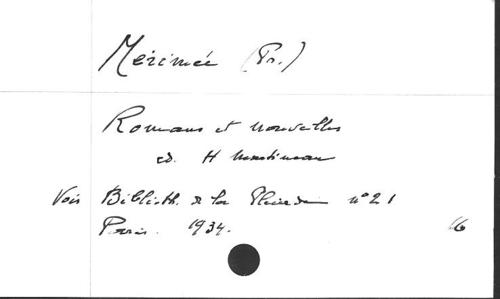 Merimée (Pr.)
Romans et nouvelles
ed. H Martineau
Voir Biblioth. de la Pleiade n° 21
Paris. 1934. 16